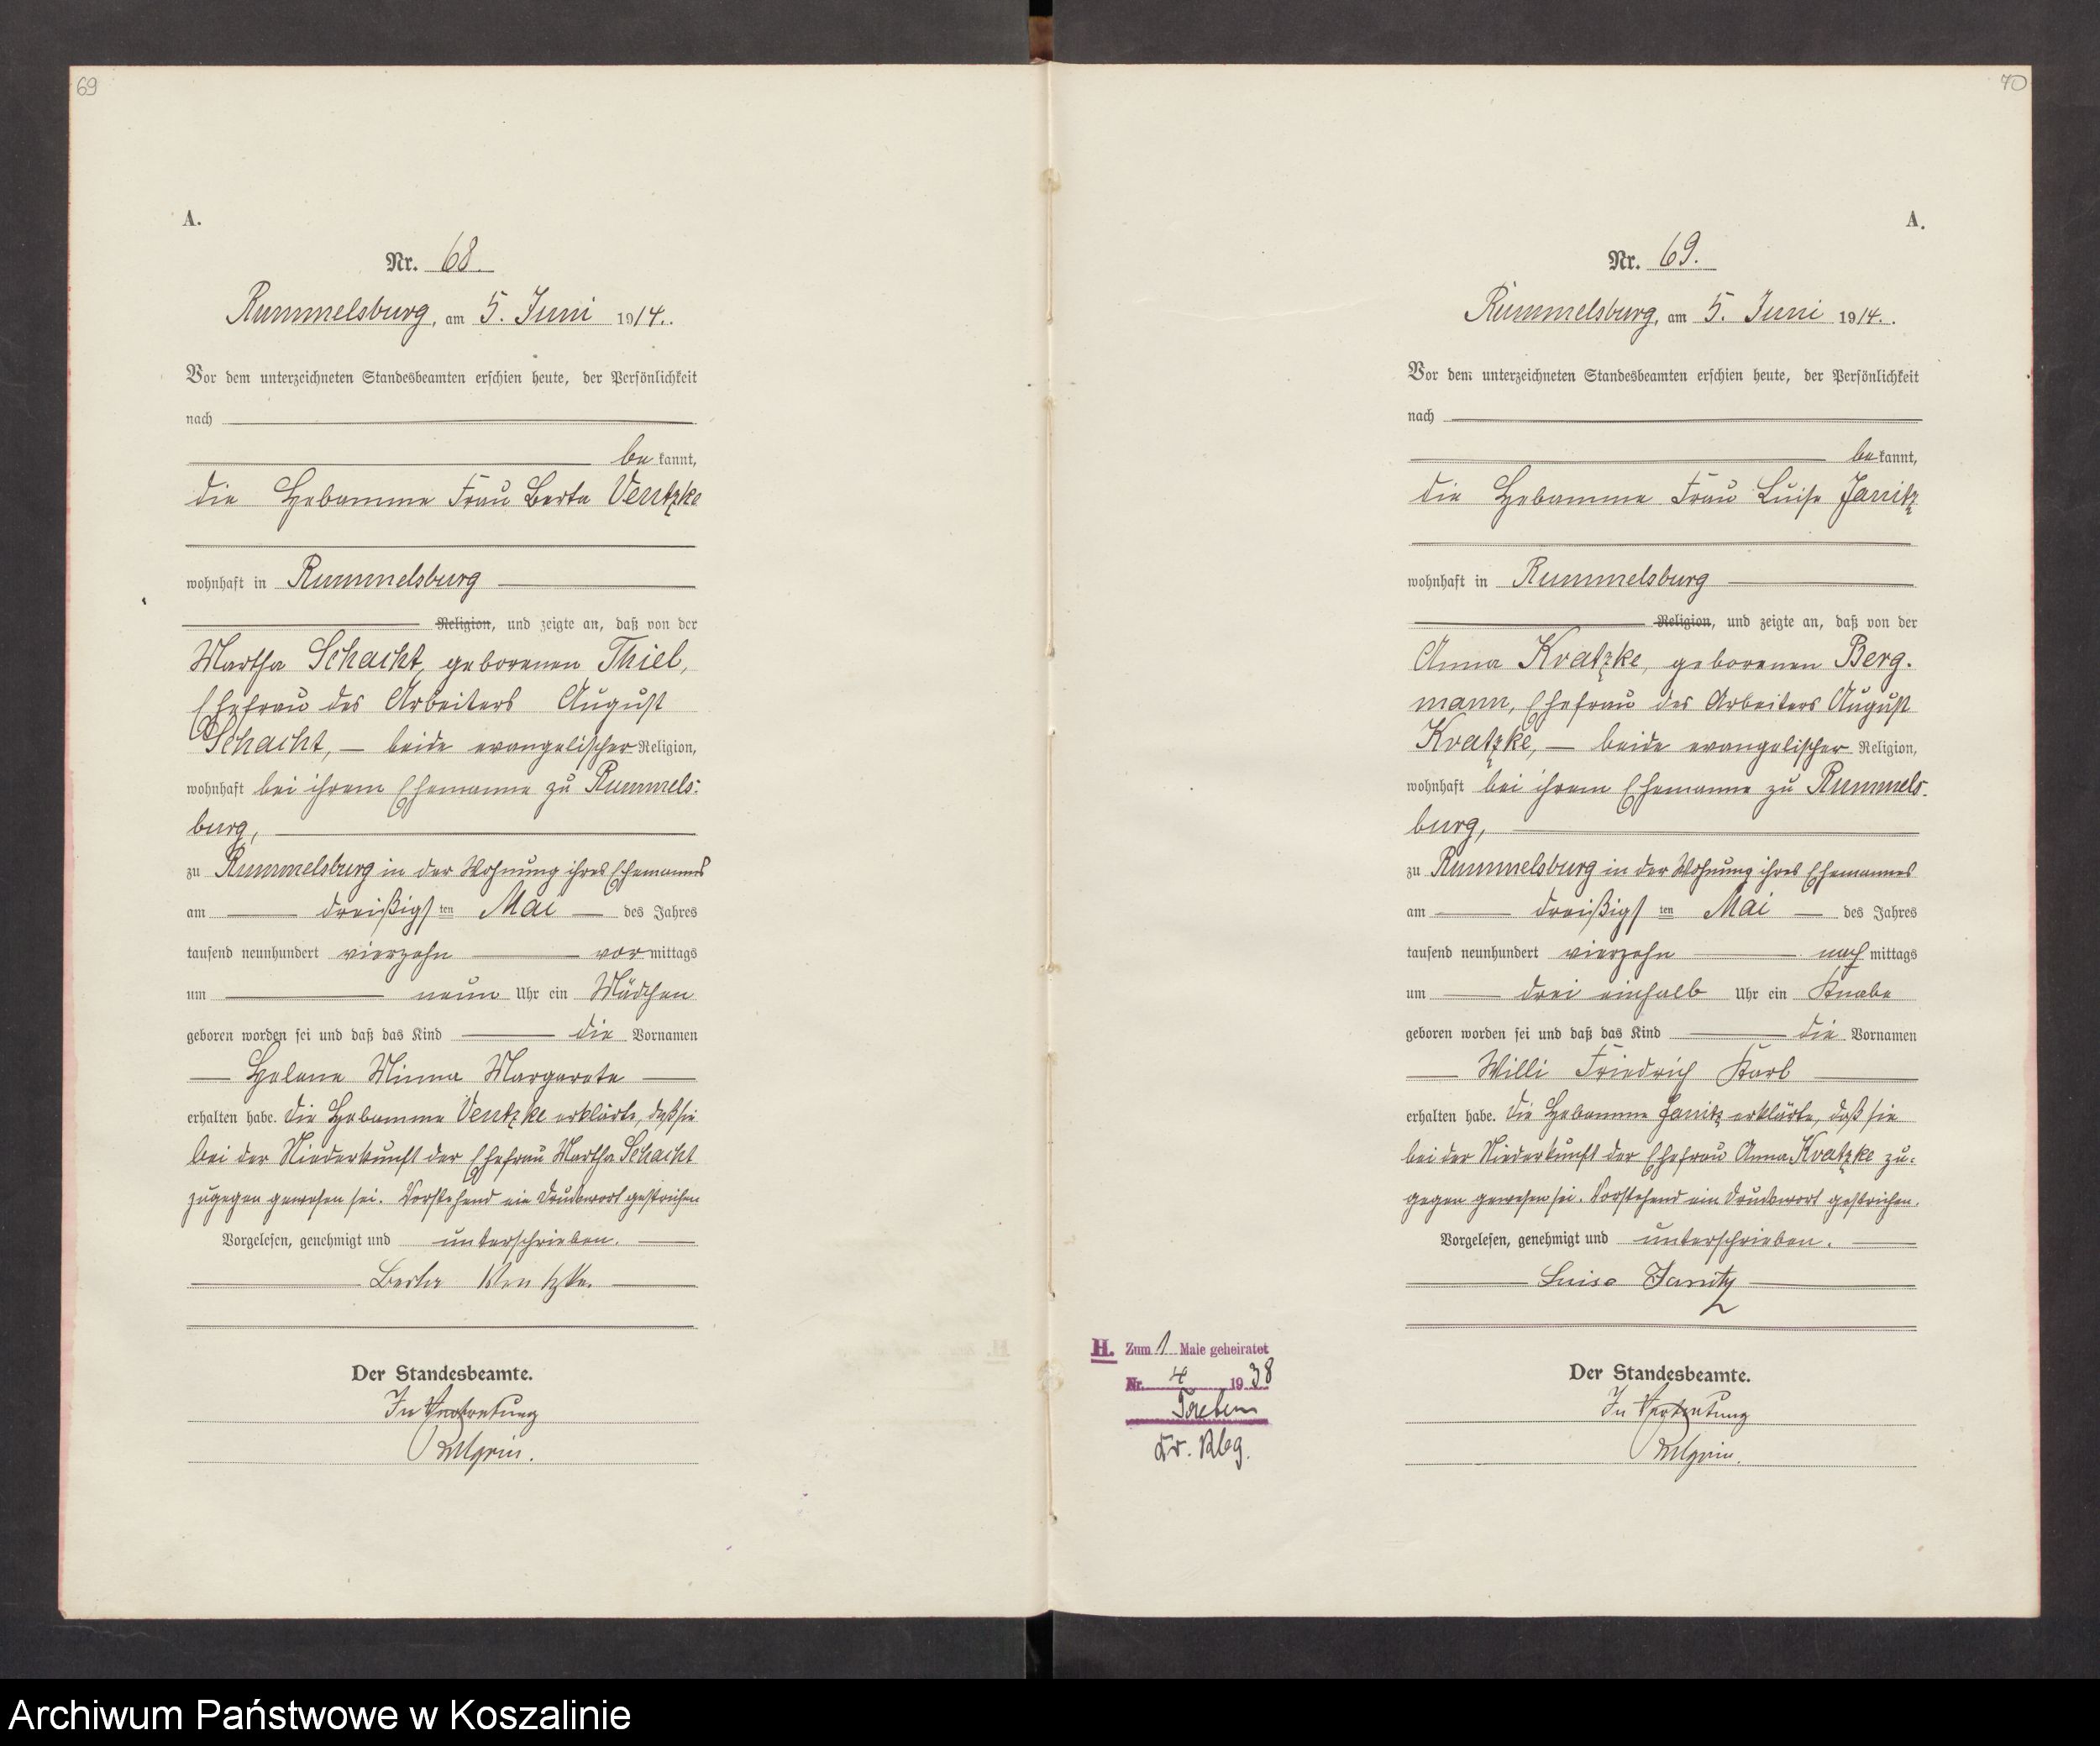 69
A.
Nr. 68.
Rummelsburg, am 5. Juni 1914.
Vor dem unterzeichneten Standesbeamten erschien heute, der Persönlichkeit
nach
be kannt,
die Hebamme Frau Berta Ventzke
wohnhaft in Rummelsburg
Religion, und zeigte an, daß von der
Martha Schacht, geborenen Thiel,
Ehefrau des Arbeiters August
Schacht, — beide evangelischer Religion,
wohnhaft bei ihrem Ehemanne zu Rummels:
burg,
zu Rummelsburg in der Wohnung ihres Ehemannes
am dreißigs ten Mai des Jahres
tausend neunhundert vierzehn vor mittags
um neun Uhr ein Mädchen
geboren worden sei und daß das Kind die Vornamen
Helene Minna Margarete
erhalten habe. Die Hebamme Ventzke erklärte, daß sie
bei der Niederkunft der Ehefrau Martha Schacht
zugegen gewesen sei. Vorstehend ein Druckwort gestrichen
Vorgelesen, genehmigt und unterschrieben.
Berta Ventzke.
Der Standesbeamte.
In Vertretung
70
A.
Nr. 69.
Rummelsburg, am 5. Juni 1914.
Vor dem unterzeichneten Standesbeamten erschien heute, der Persönlichkeit
nach
be kannt,
die Hebamme Frau Luise Janitz
wohnhaft in Rummelsburg
Religion, und zeigte an, daß von der
Anna Kratzke, geborenen Berg-
mann, Ehefrau des Arbeiters August
Kratzke, — beide evangelischer Religion,
wohnhaft bei ihrem Ehemanne zu Rummels-
burg,
zu Rummelsburg in der Wohnung ihres Ehemannes
am dreißigs ten Mai des Jahres
tausend neunhundert vierzehn nach mittags
um drei einhalb Uhr ein Knabe
geboren worden sei und daß das Kind die Vornamen
Willi Friedrich Karl
erhalten habe. Die Hebamme Janitz erklärte, daß sie
bei der Niederkunft der Ehefrau Anna Kratzke zu-
gegen gewesen sei. Vorstehend ein Druckwort gestrichen.
Vorgelesen, genehmigt und unterschrieben.
Luise Janitz
Der Standesbeamte.
In Vertretung
H. Zum 1 Male geheiratet
Nr. 4 1938
Treten
Kr. Rbg.
Archiwum Państwowe w Koszalinie